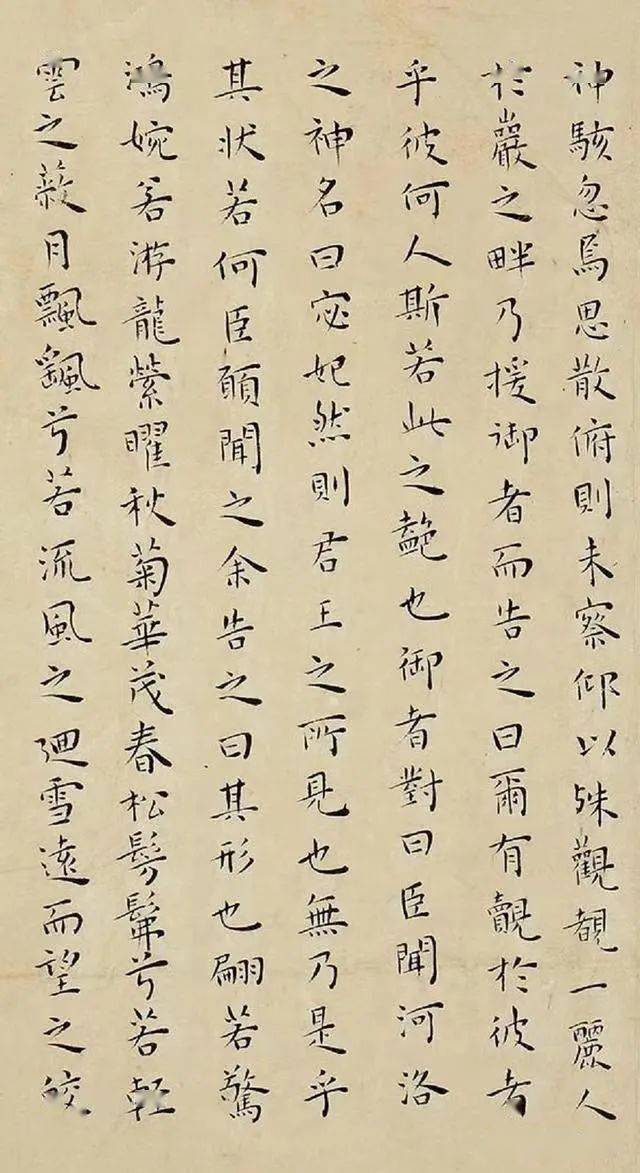 神駭忽焉思散俯則未察仰以殊觀覩一麗人
於巖之畔乃援御者而告之曰爾有覿於彼者
乎彼何人斯若此之艷也御者對曰臣聞河洛
之神名曰宓妃然則君王之所見也無乃是乎
其状若何臣願聞之余告之曰其形也翩若驚
鴻婉若游龍榮曜秋菊華茂春松髣髴兮若輕
雲之蔽月飄飖兮若流風之廻雪遠而望之皎